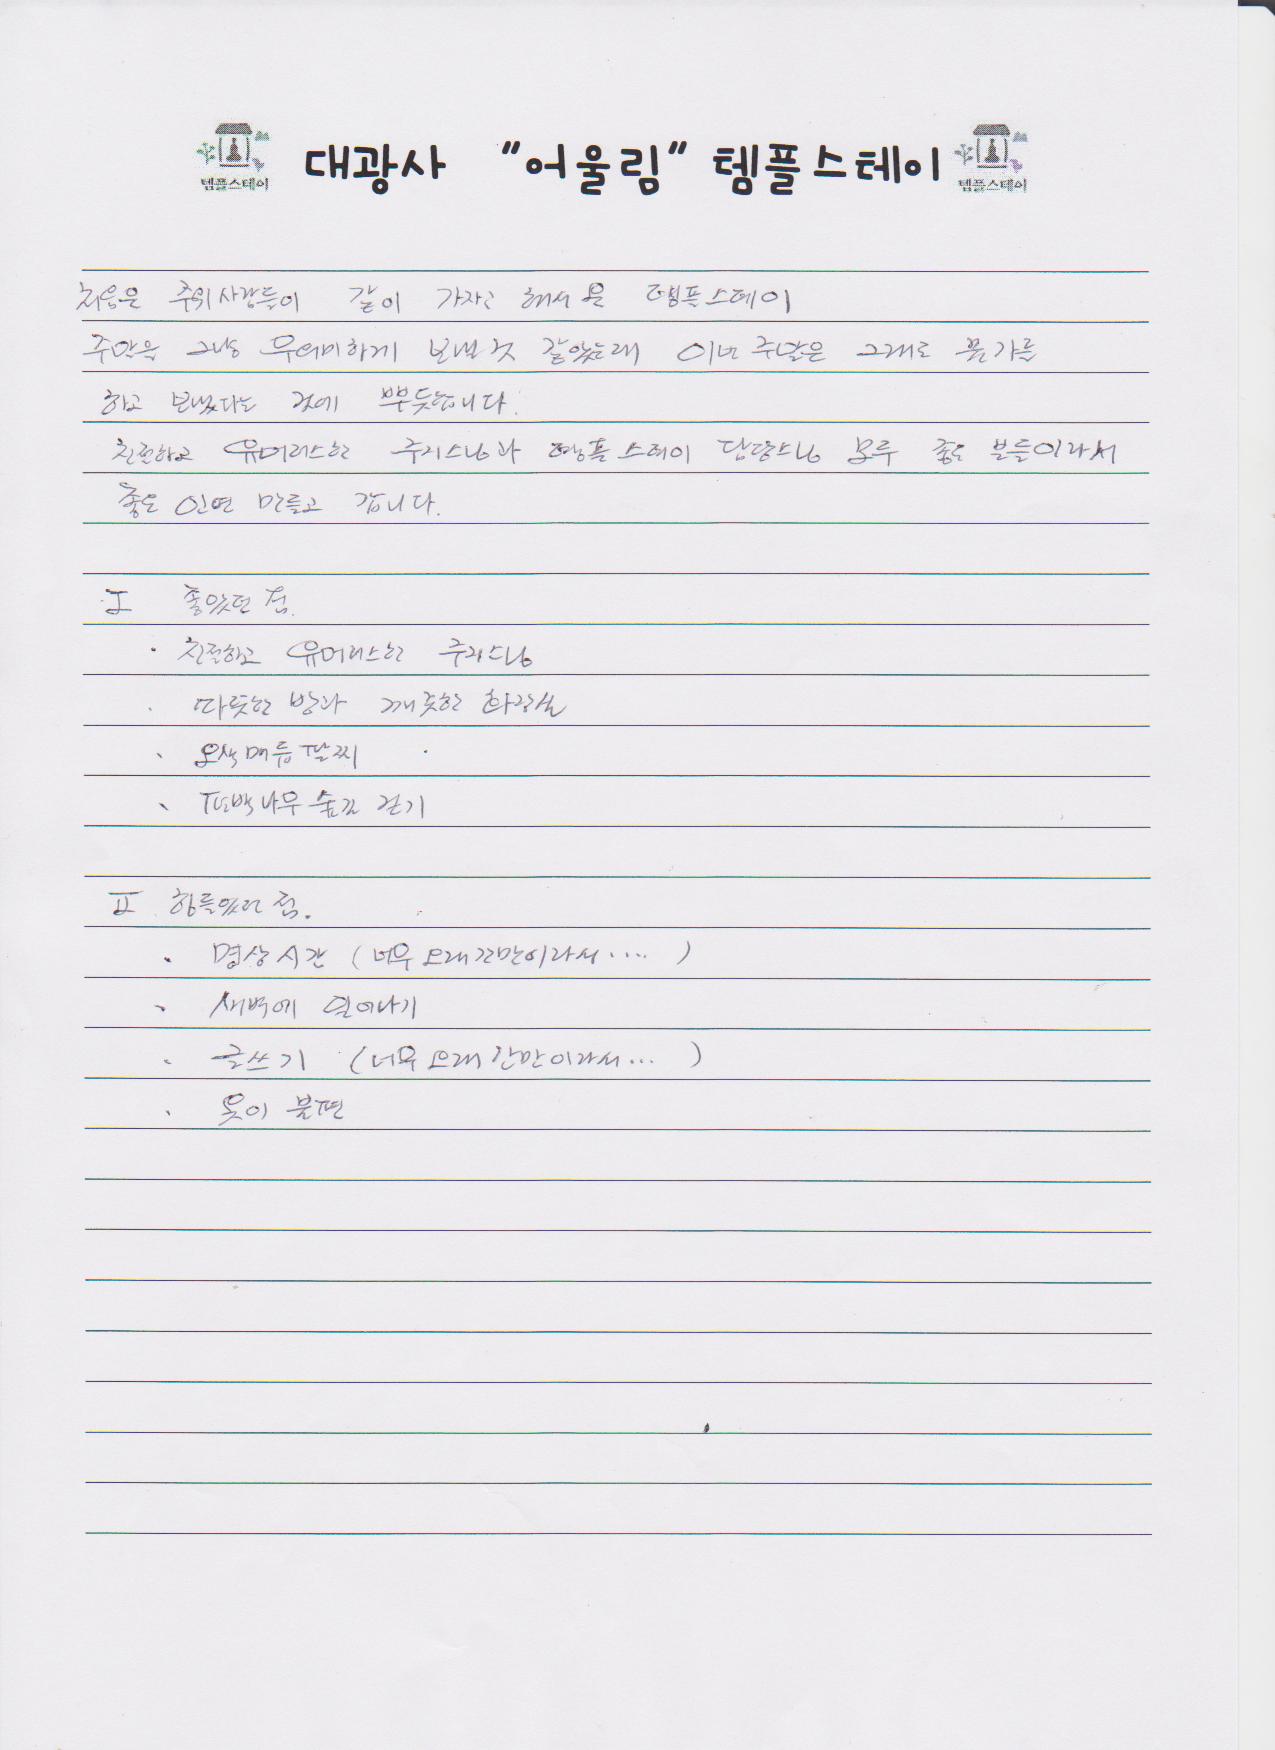 템플스테이 대광사 "어울림" 템플스테이 템플스테이
처음은 주위사람들이 같이 가자고 해서 온 템플스테이
주말을 그냥 무의미하게 보낸 것 같았는데 이번 주말은 그래도 뭔가를
하고 보냈다는 것에 뿌듯합니다.
친절하고 유머러스한 주지스님과 템플스테이 담당스님 모두 좋은 분들이라서
좋은 인연 만들고 갑니다.
I 좋았던 점.
· 친절하고 유머러스한 주지스님
· 따뜻한 방과 깨끗한 화장실
· 오색매듭팔찌
· 편백나무 숲길 걷기
II 힘들었던 점.
· 명상시간 (너무 오래간만이라서....)
· 새벽에 일어나기
· 글쓰기 (너무 오래간만이라서...)
· 옷이 불편